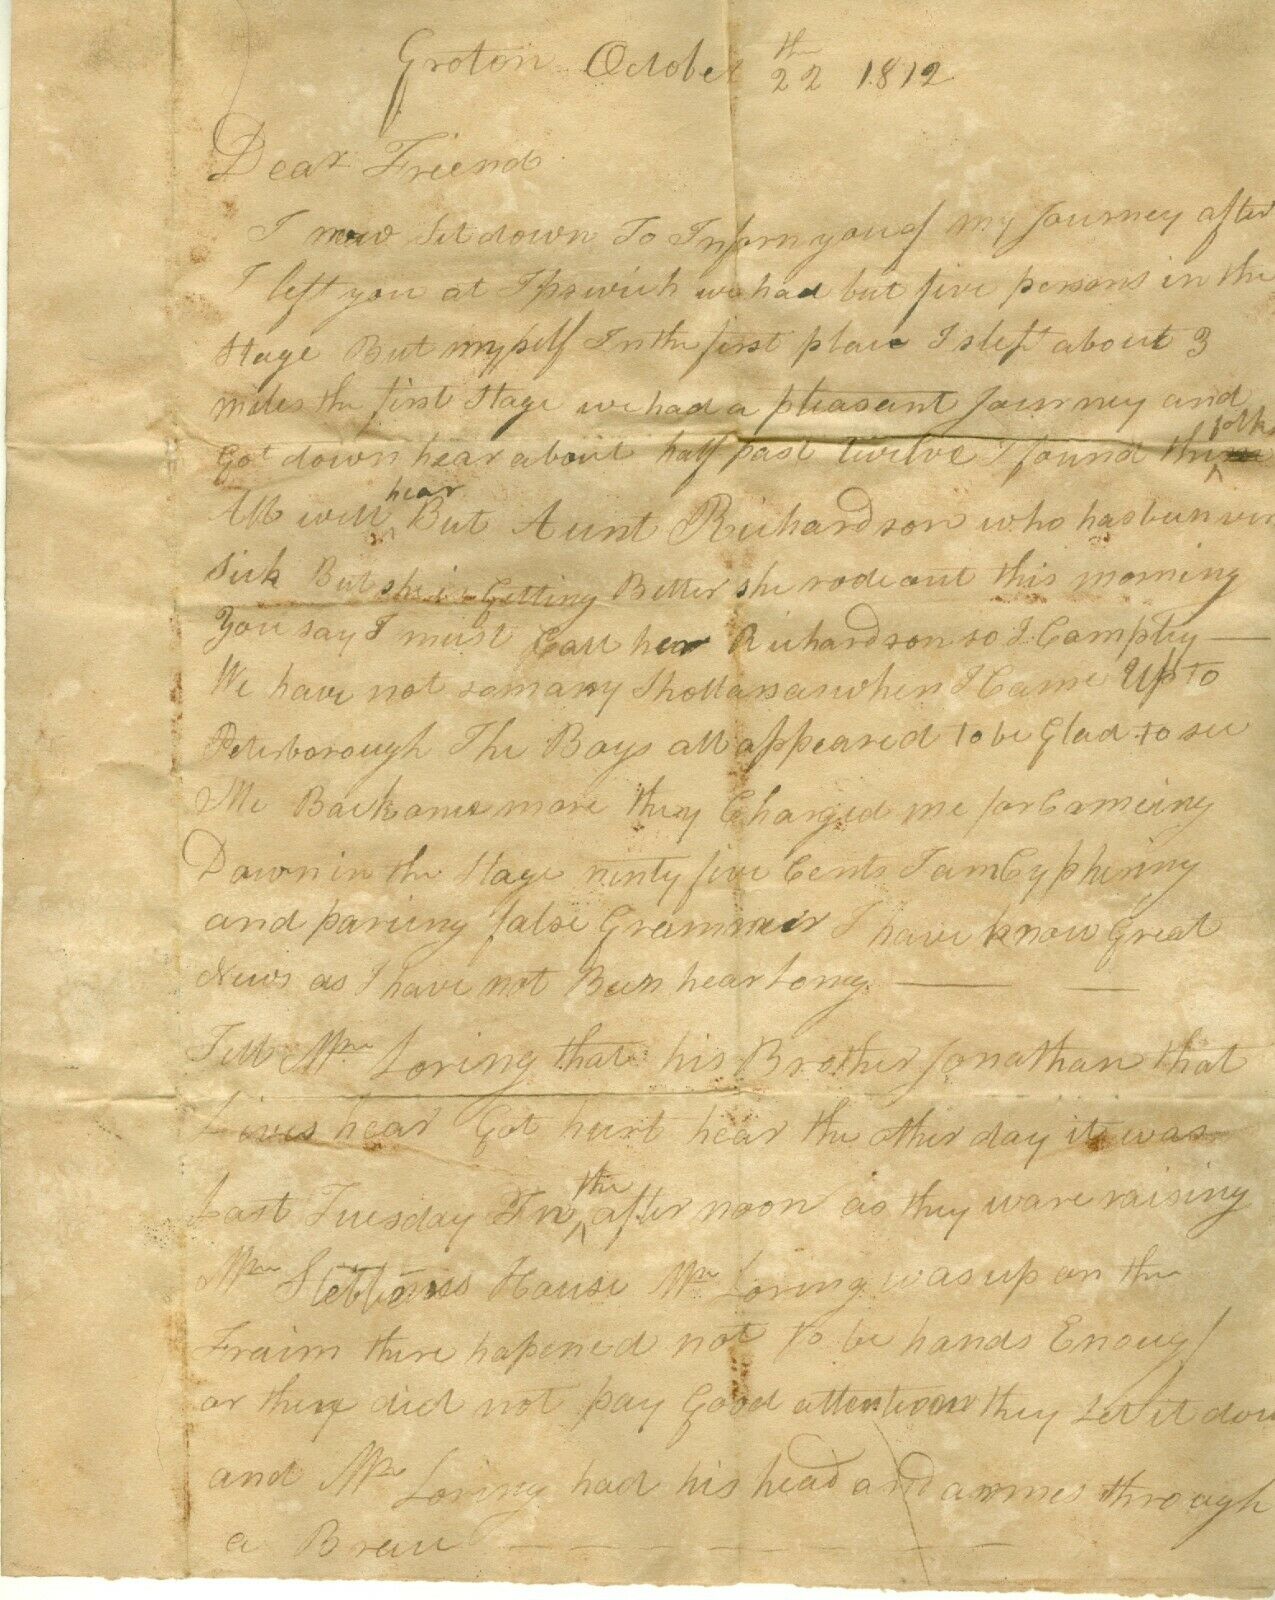 Groton October 22th 1812
Dear Friend
I now Set down To Inform you of my Journey after
I left you at Ipswich we had but five persons in the
Stage But myself In the first place I slept about 3
miles the first Stage we had a pleasant Journey and
Got down hear about half past twelve I found the folks
All well hear But Aunt Richardson who has bun ver
Sick But she is Getting Better she rode out this morning
You say I must Call her Richardson so I Comply —
We have not so many Shollars as when I Came Up to
Peterborough The Boys all appeared to be Glad to see
Me Back once more they Charged me for Comeing
Down in the Stage ninty five Cents I am Cyphering
and parsing false Grammar I have know Great
News as I have not Been hear Long. — —
Tell Mr Loring that his Brother Jonathan that
Lives hear Got hurt hear the other day it was
Last Tuesday In the after noon as they ware raising
Mr House Mr Loring was up on the
Fraim there hapened not to be hands Enough
or they did not pay Good attention they Let it dow
and Mr Loring had his head and armes through
a Brace — — — — — — —